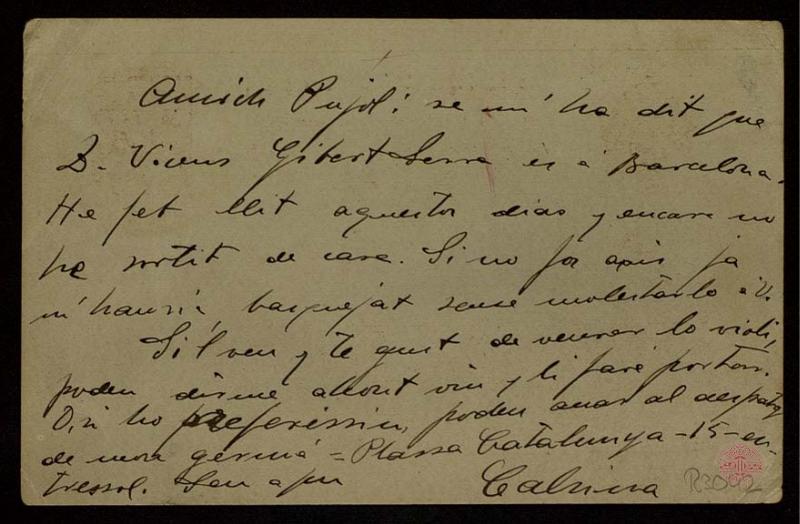 Amich Pujol: se m'ha dit que
D. Vicens Gibert Serra es á Barcelona.
He fet llit aquestos dias y encare no
he sortit de casa. Si no fos axis ja
m'hauria basquejat sense molestarlo á V.
Si'l veu y té gust de veurer lo violí,
poden dirme ahont viu y li faré portar.
O, si ho prefereissin, poden anar al despatx
de mon germá = Plassa Catalunya - 15 - en-
tressol. Seu afm
Cabrera
R3042